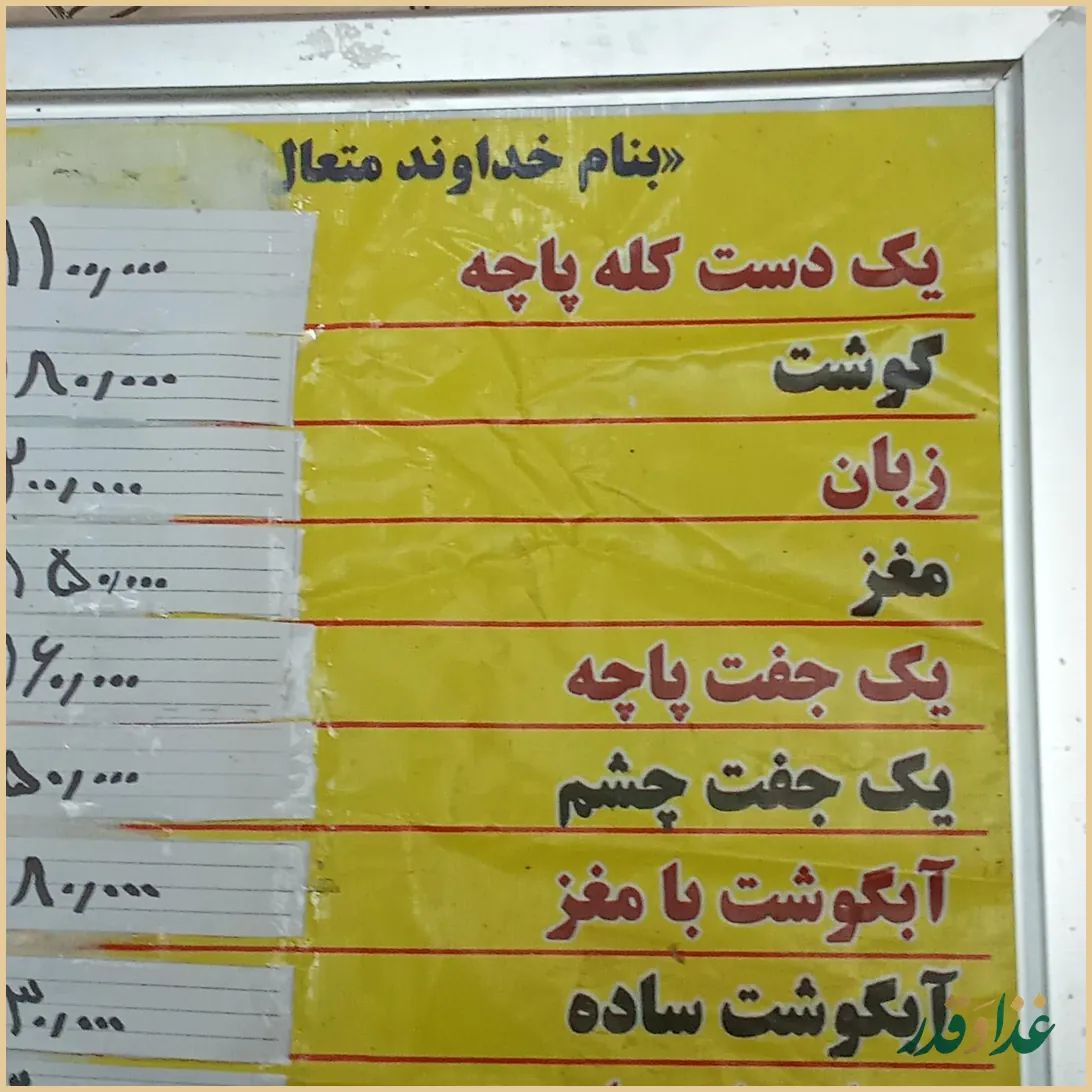 «بنام خداوند متعال
یک دست کله پاچه ۱۱۰۰/۰۰۰
گوشت ۸۰/۰۰۰
زبان ۲۰۰/۰۰۰
مغز ۱۵۰/۰۰۰
یک جفت پاچه ۱۶۰/۰۰۰
یک جفت چشم ۵۰/۰۰۰
آبگوشت با مغز ۸۰/۰۰۰
آبگوشت ساده ۳۰/۰۰۰
غذا و قدر